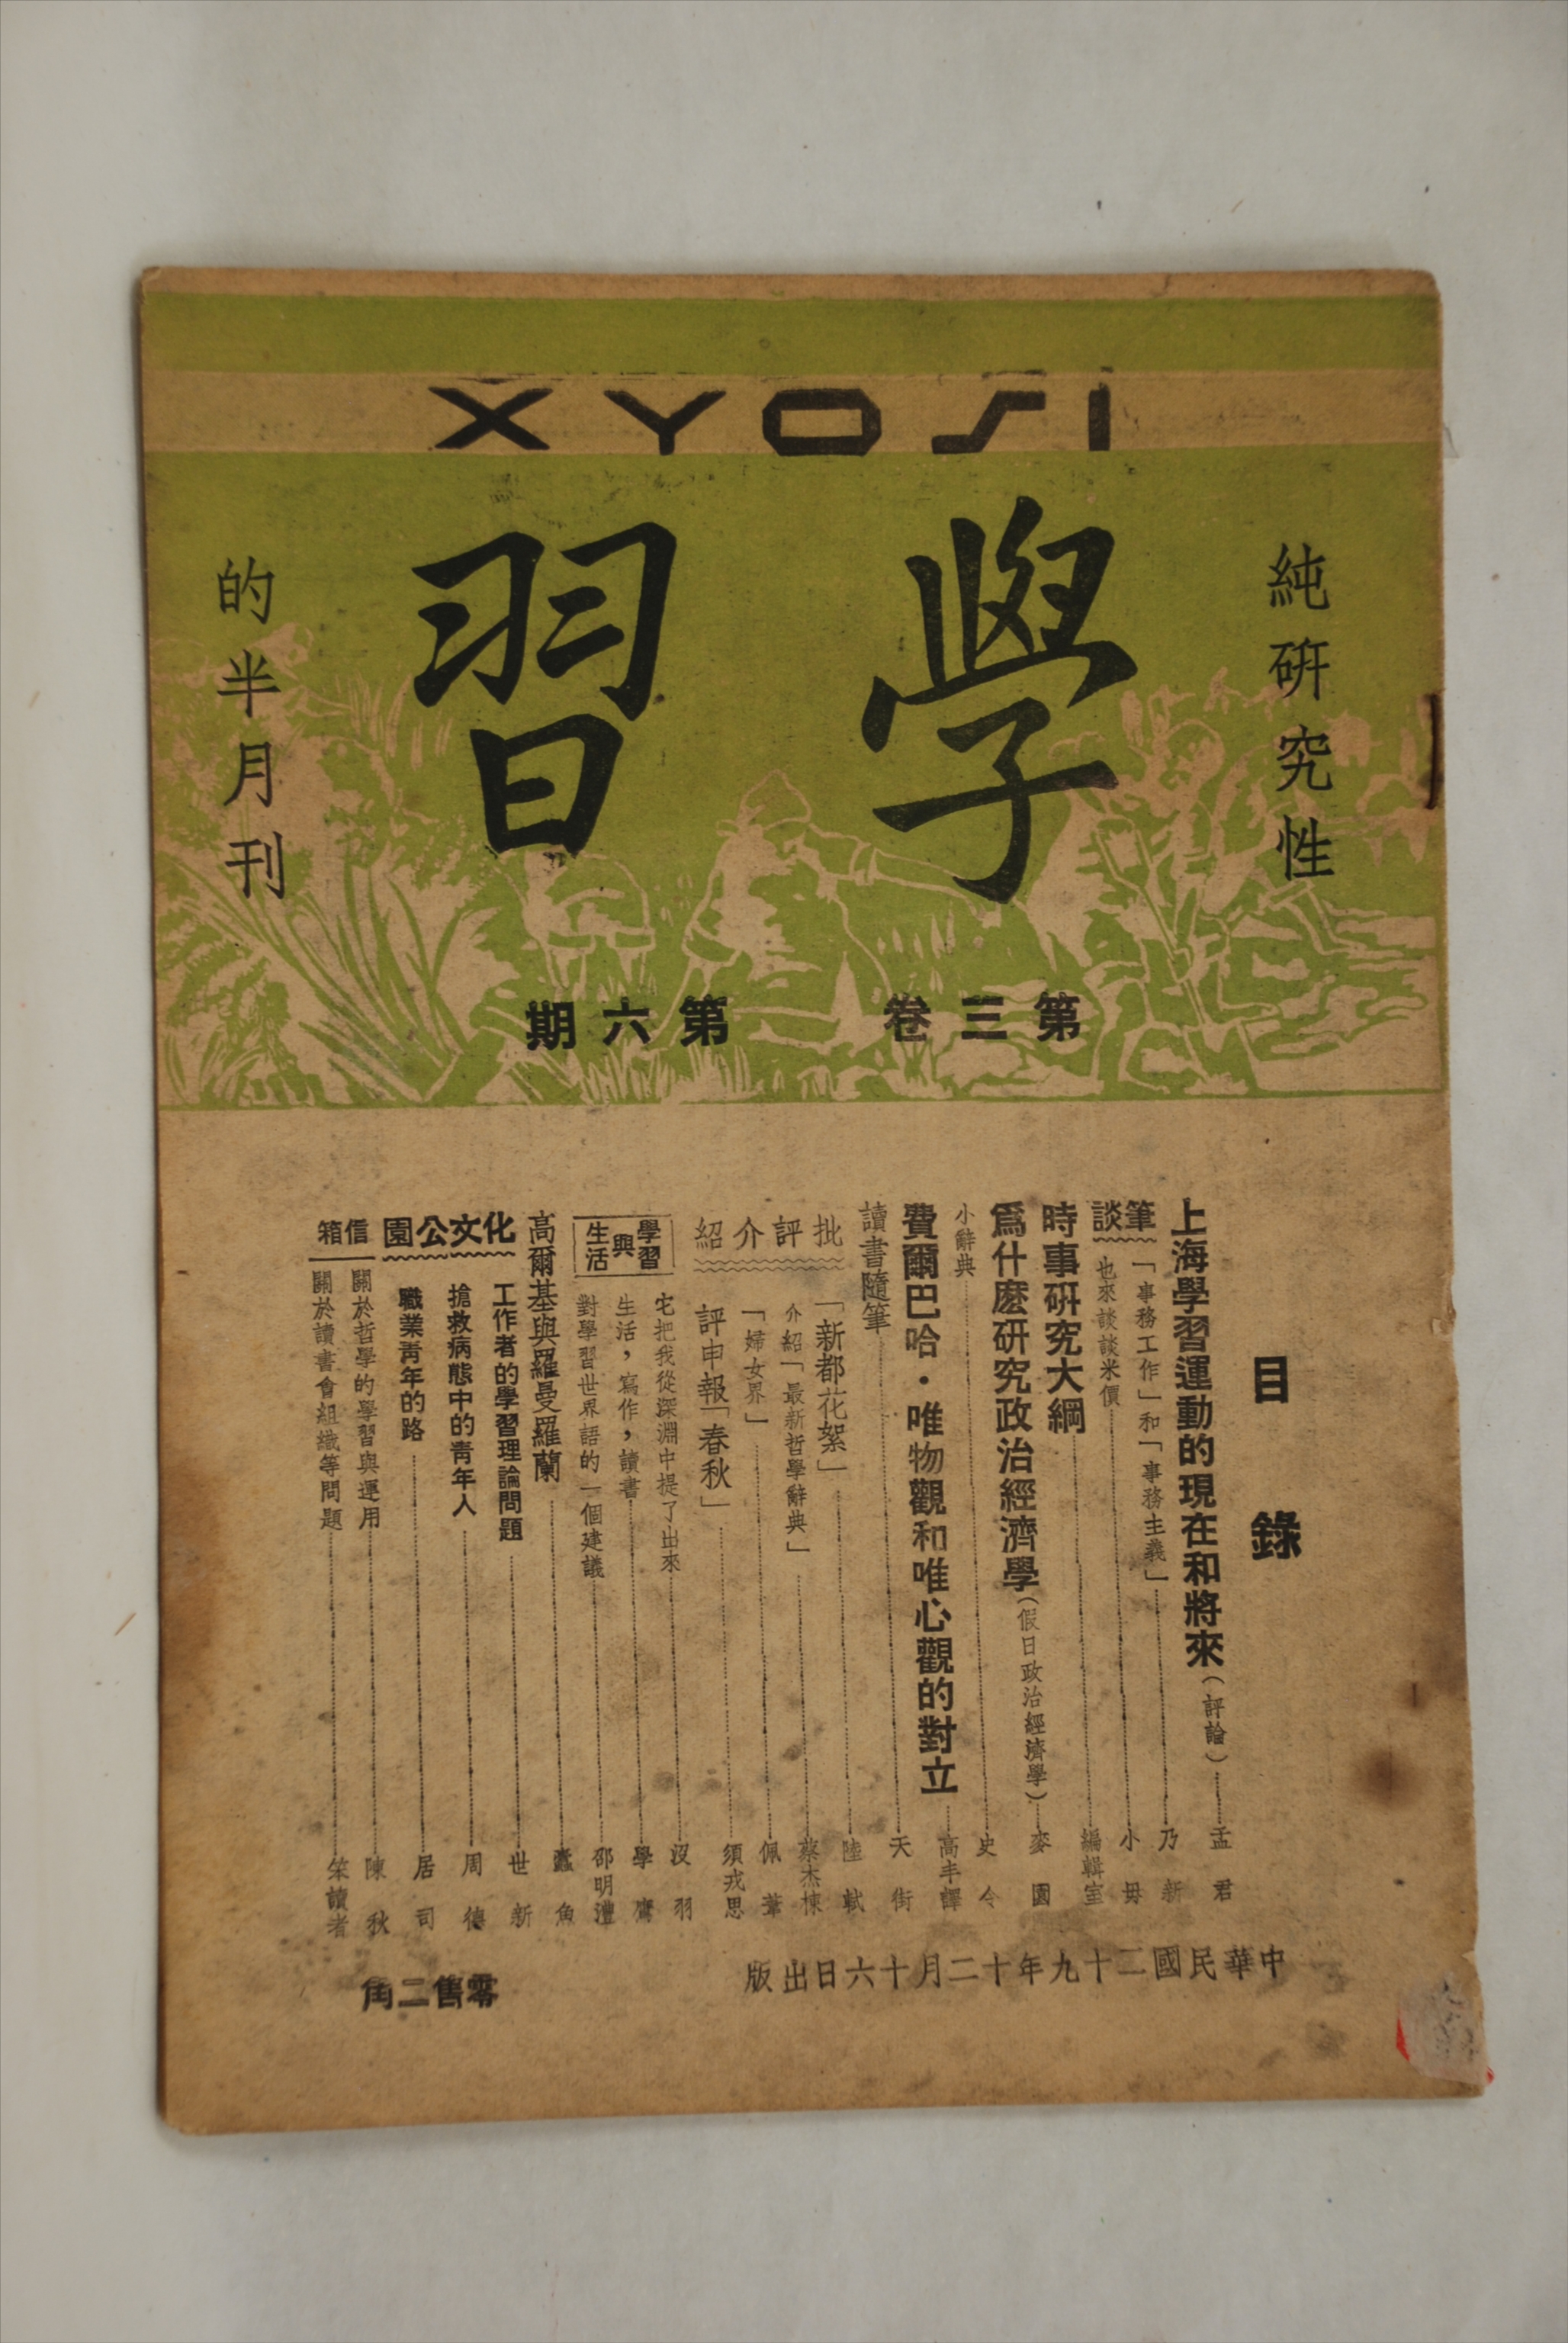 XYOSI
學習
純研究性
的半月刊
第三卷 第六期
目錄
上海學習運動的現在和將來(評論)……孟君
筆談
「事務工作」和「事務主義」……乃新
也來談談米價……小毋
時事研究大綱……編輯室
爲什麽研究政治經濟學(假日政治經濟學)……麥園
小辭典……史令
費爾巴哈・唯物觀和唯心觀的對立……高丰譯
讀書隨筆……天街
批評介紹
「新都花絮」……陸軾
介紹「最新哲學辭典」……蔡杰棟
「婦女界」……佩葦
評申報「春秋」……須戎思
學習與生活
它把我從深淵中提了出來……沒羽
生活,寫作,讀書……學鷹
對學習世界語的一個建議……邵明澧
高爾基與羅曼羅蘭……蠹魚
化文公園
工作者的學習理論問題……世新
搶救病態中的青年人……周德
職業青年的路……居司
信箱
關於哲學的學習與運用……陳秋
關於讀書會組織等問題……笨讀者
中華民國二十九年十二月十六日出版
零售二角